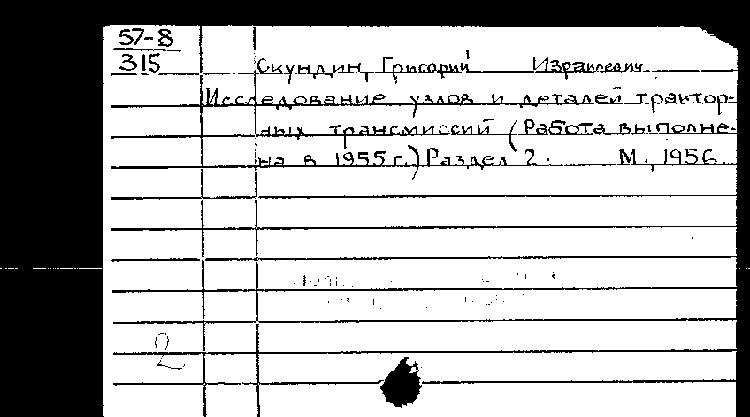 57-8
315
Скундин, Григорий Израилевич
Исследование узлов и деталей трактор-
ных трансмиссий (Работа выполне-
на в 1955 г.) Раздел 2. М., 1956.
2